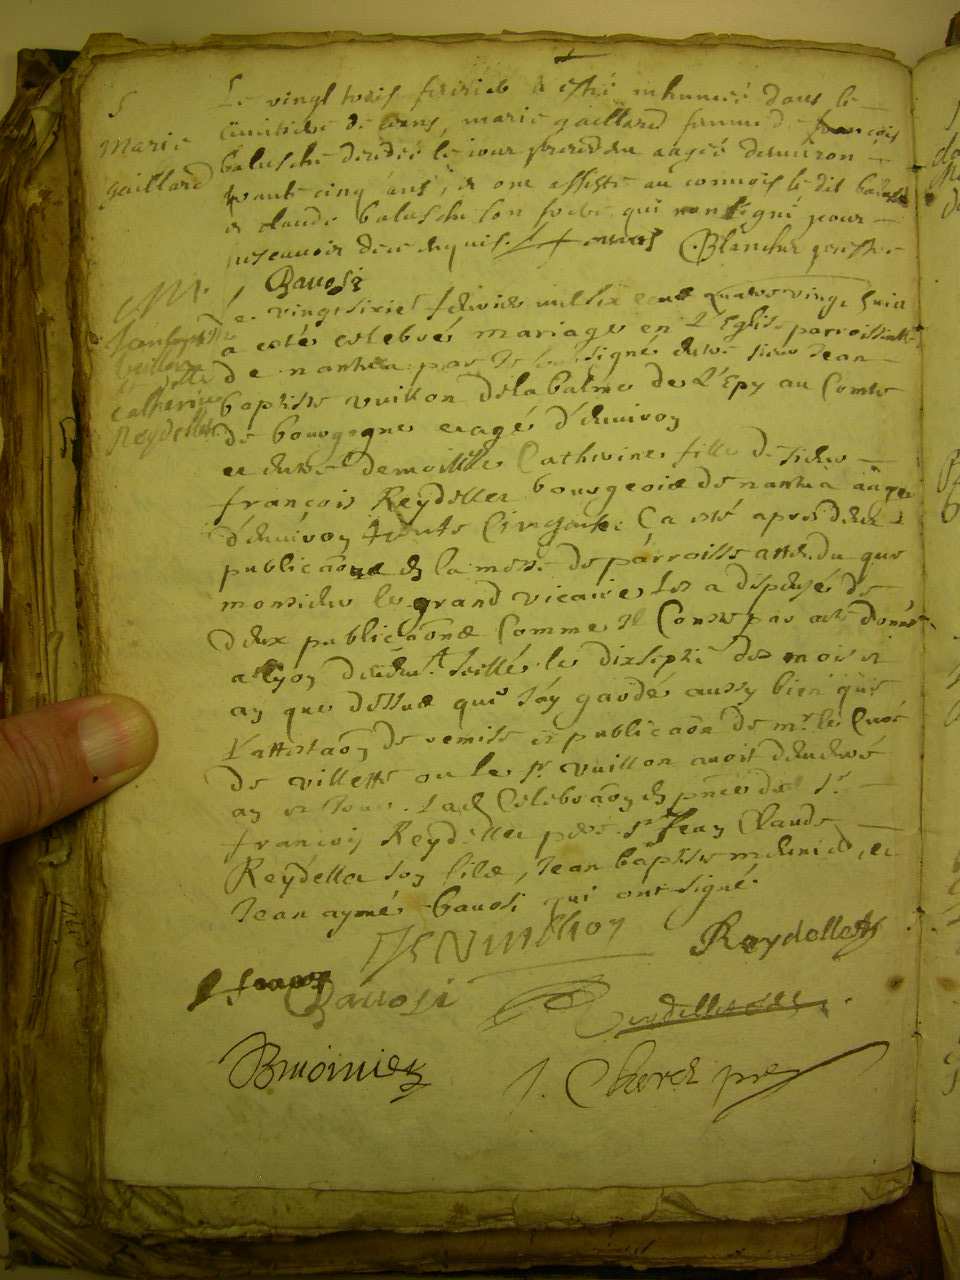 S
Marie
gaillard
Le vingt trois feuvrier a esté inhumée dans le
cimitiere de ceans, marie gaillard femme de françois
baluschi decedée le iour precedeu aagée denuiron
trante cinq ans, et ont assisté au conuois le dit
et claude baluschi son frere qui nont signé pour
ne scauoir de ce enquis. Blanchet prestre
Bauosi
M.
Jean baptiste
Vuillon
et dlle
Catherine
Reydellet
Le vingt sixie feuvrier mil six cent quatre vingt huit
a esté celebré mariage en l'Eglise parroissialle
de nantua par Je soubsigné entre sieur Jean
baptiste vuillon de la balme de l'Epy au Comté
de bourgogne eagé d'enuiron
et entre demoiselle Catherine fille de sieur
françois Reydellet bourgeois de nantua aagee
d'enuiron trente Cinq ans. Ca esté apres deux
publicaons en la messe de parroisse attendu que
monsieur le grand vicaire les a dispensé de
deux publicaons Comme Il Conste par acte donné
a lyon seellé le dixsepte des mois et
an que dessus que j'ay gardé aussy bien que
l'attestaon de remise et publicaon de mr. le Curé
de villette ou le sr. vuillon auoit demeuré
an et Jour. Lad. Celebraon en pnce de sr.
françois Reydellet pere sr. Jean Claude
Reydellet son filz, Jean baptiste munier, et
Jean aymé bauosi qui ont signé.
JB Vuilhon Reydellet
Bauosi Reydellet
Bmoinier J. Cherel pre